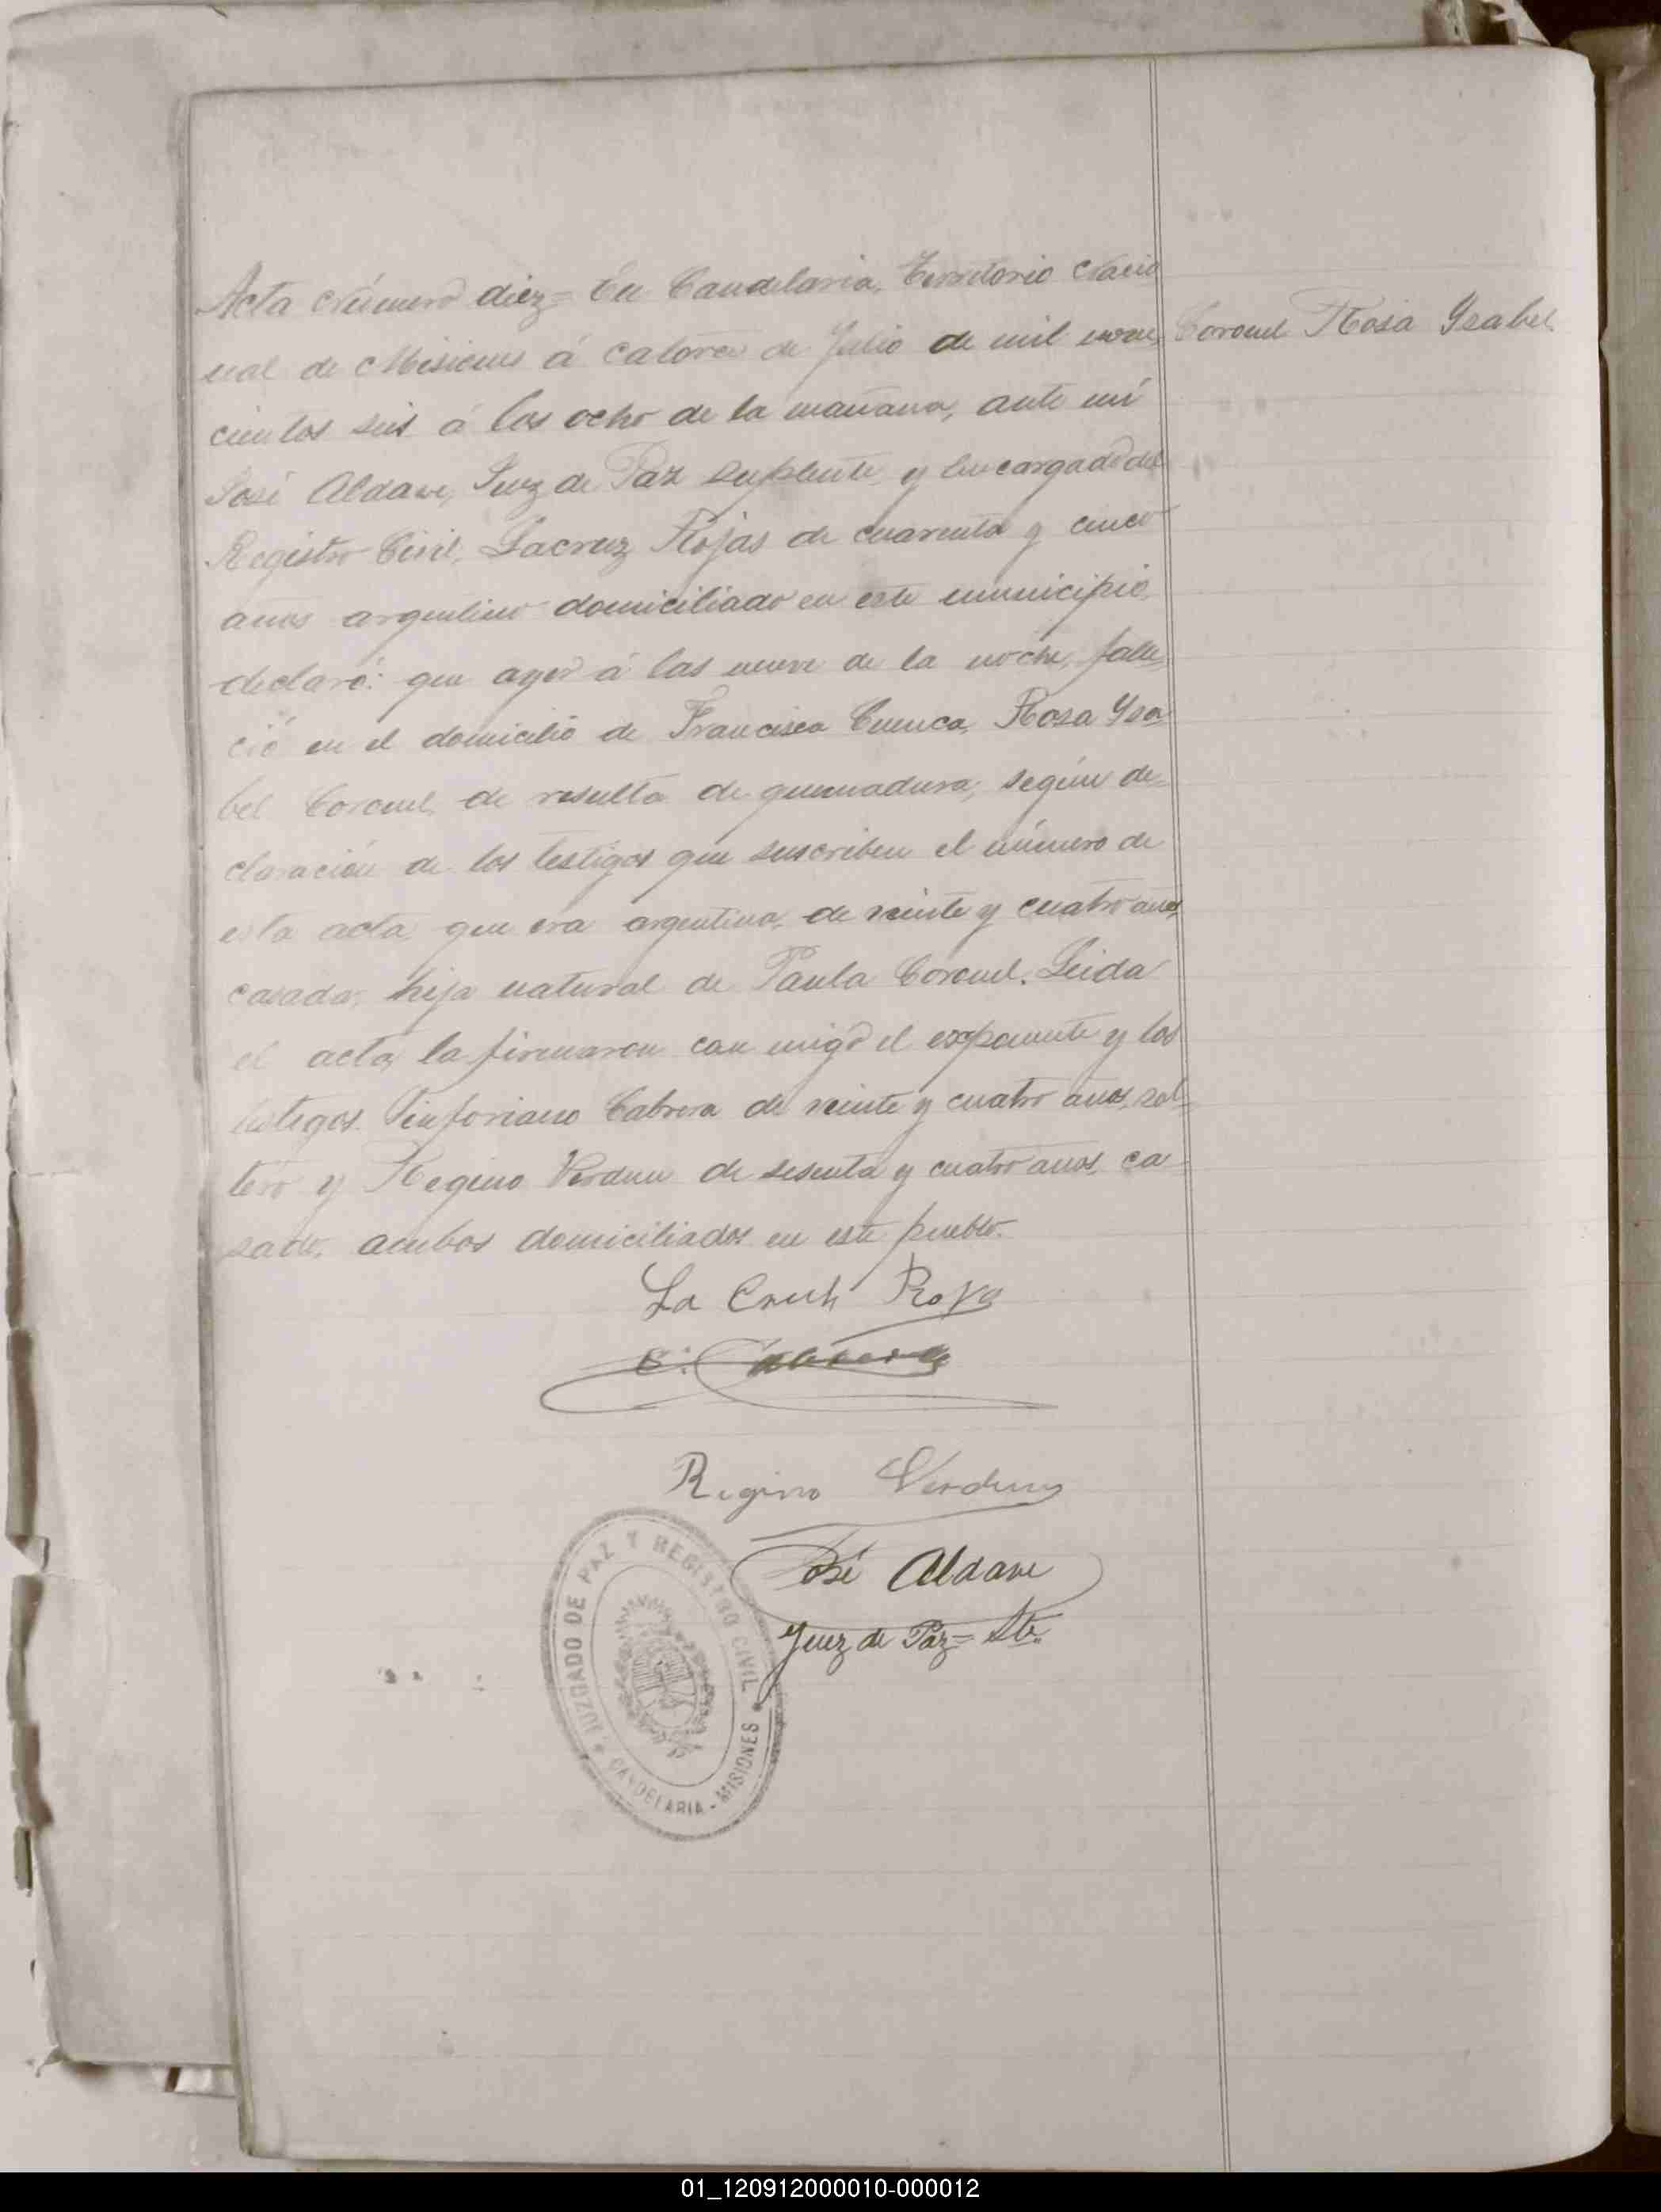 Acta Número diez= En Candelaria, Territorio Nacio
nal de Misiones á catorce de Julio de mil nove,
Coronel Rosa Ysabel.
cientos seis á las ocho de la mañana, ante mí
José Aldave, Juez de Paz suplente y Encargado del
Registro Civil, Lacruz Rojas de cuarenta y cinco
años argentino domiciliado en este municipio,
declaró: que ayer á las nueve de la noche, falle,
ció en el domicilio de Francisca Cuenca, Rosa Ysa
bel Coronel, de resulta de quemadura, según de=
claración de los testigos que suscriben el número de
esta acta, que era argentina, de veinte y cuatro años,
casada, hija natural de Paula Coronel. Leida
el acta, la firmaron con migo el exponente y los
testigos Sinforiano Cabrera de veinte y cuatro años, sol=
tero y Regino Verdun de sesenta y cuatro años, ca=
sado, ambos domiciliados en este pueblo.
La Cruz Rojas
Cabrera
Regino Verdun
José Aldave
Juez de Paz= Ste.
JUZGADO DE PAZ Y REGISTRO CIVIL
CANDELARIA - MISIONES
01_120912000010-000012